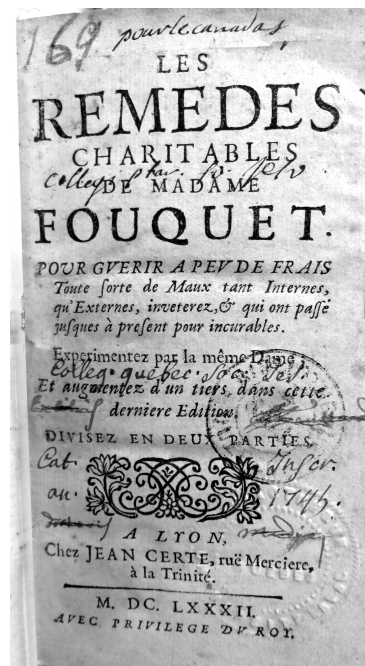 169
pour le canadas
LES
REMEDES
CHARITABLES
DE MADAME
FOUQUET.
POUR GVERIR A PEV DE FRAIS
Toute sorte de Maux tant Internes,
qu'Externes, inveterez, & qui ont passé
jusques à present pour incurables.
Experimentez par la même Dame
Colleg. quebec. Soc. Jes.
Et augmentez d'un tiers, dans cette
derniere Edition.
DIVISEZ EN DEUX PARTIES.
Cat. Inscr.
an. 1745.
A LYON,
Chez JEAN CERTE, ruë Merciere,
à la Trinité.
M. DC. LXXXII.
AVEC PRIVILEGE DV ROY.